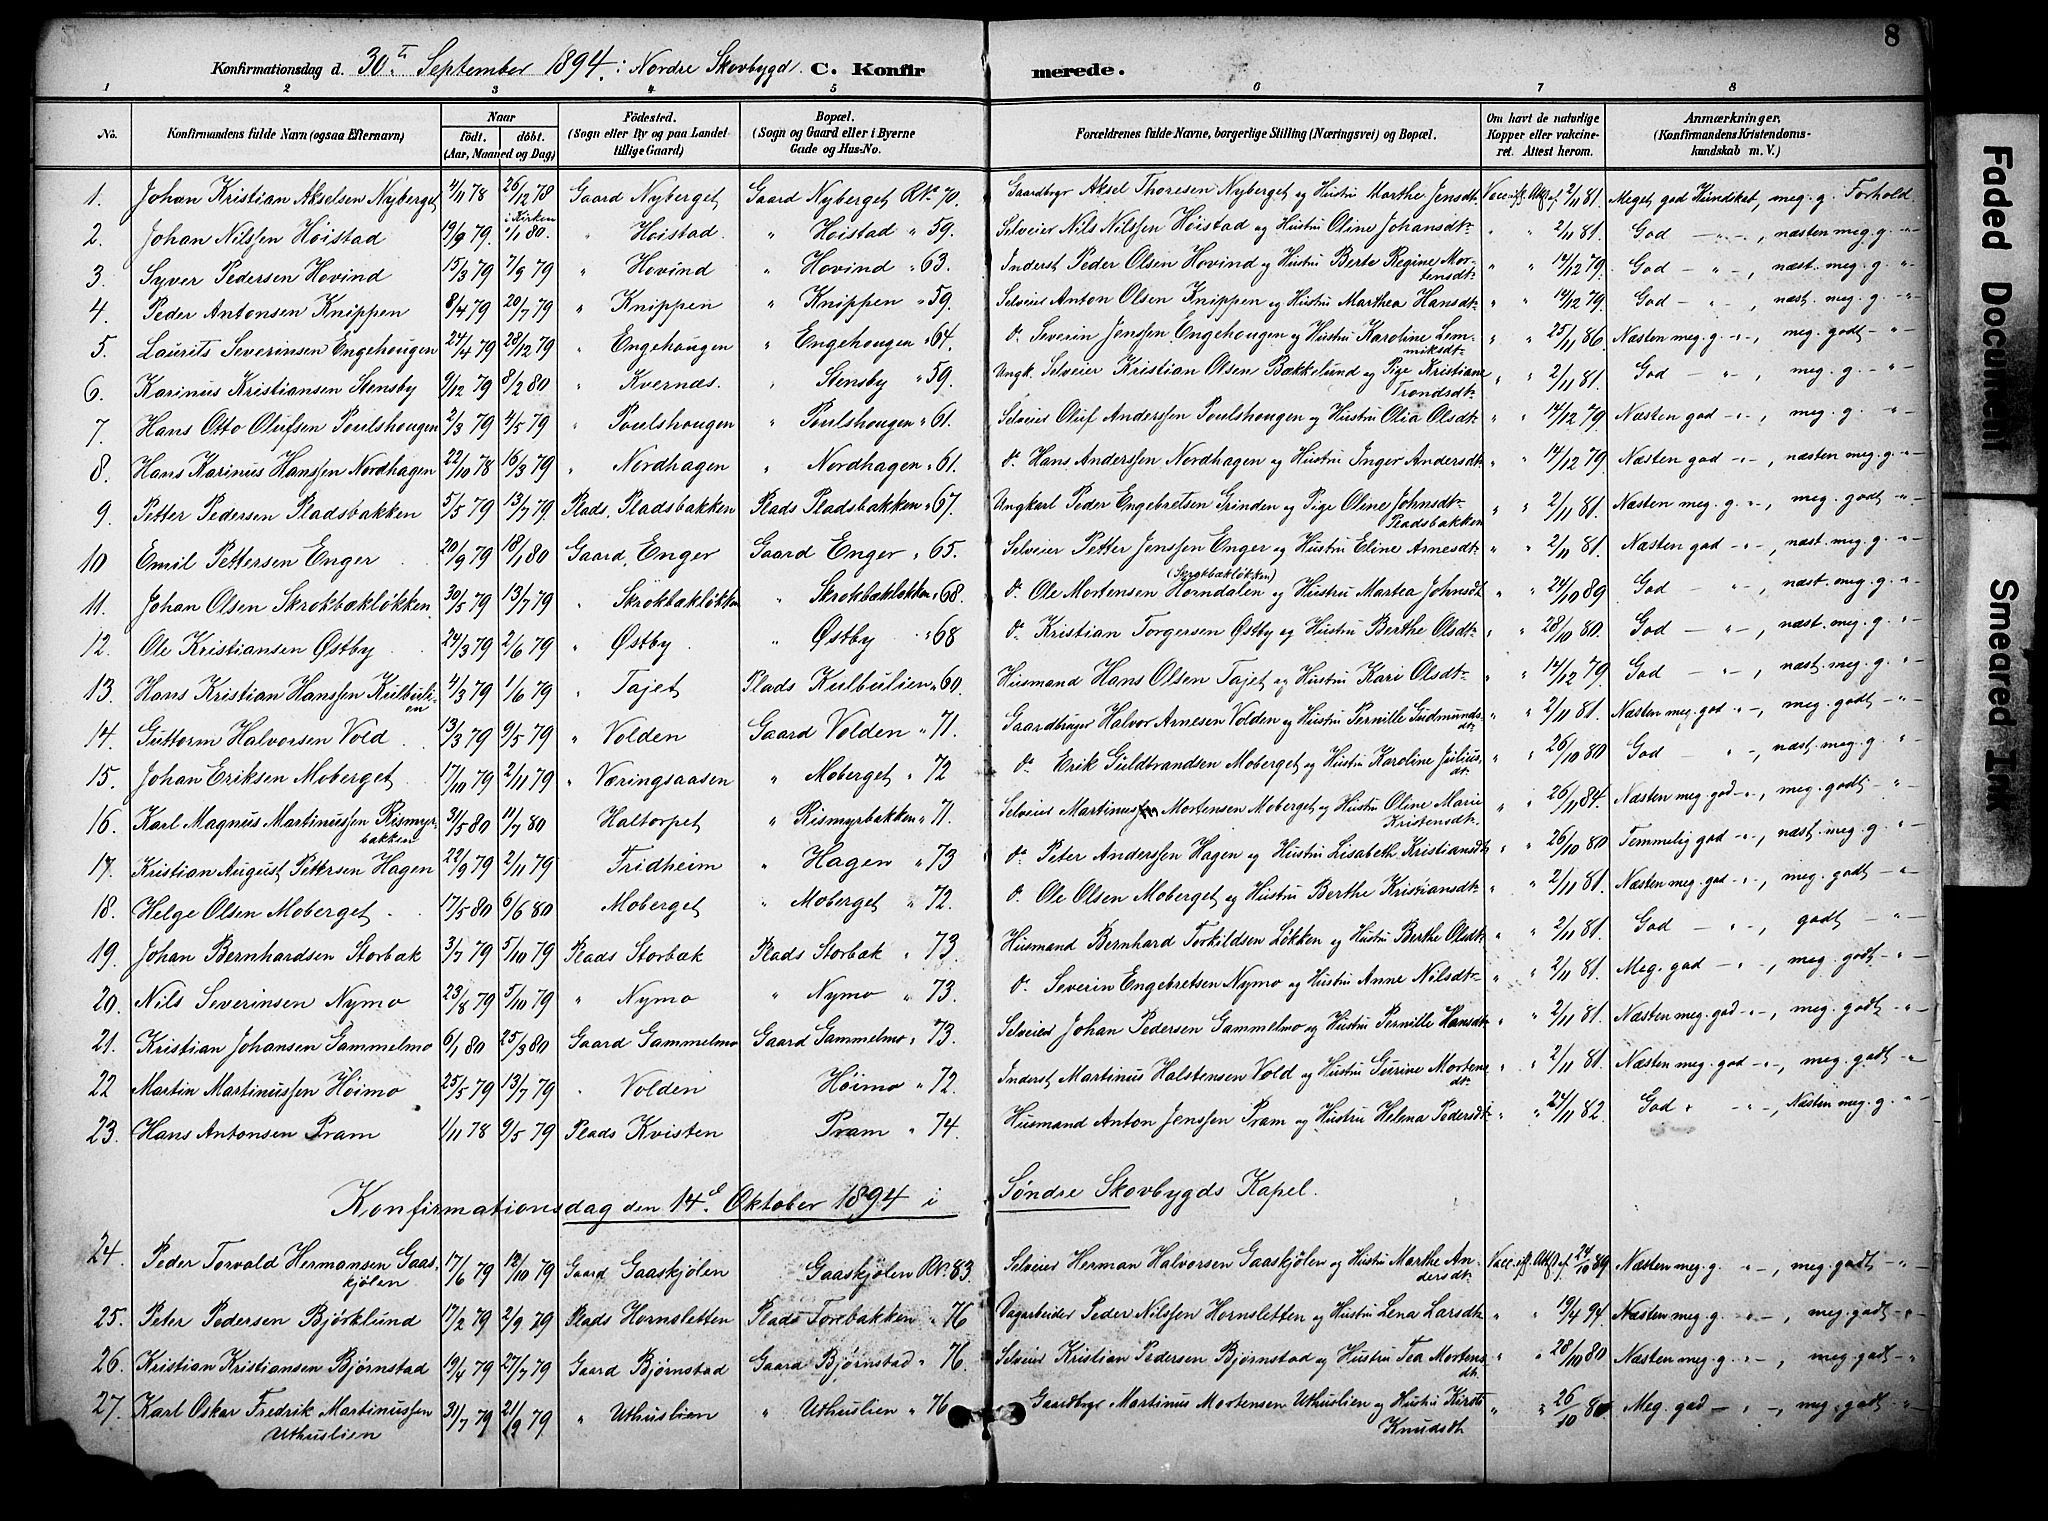 8
Konfirmationsdag d. 30te September 1894 i Nordre Skovbygd. C. Konfirmerede.
1 2 3 4 5 6 7 8
No. Konfirmandens fulde Navn (ogsaa Efternavn) Naar født. døbt. (Aar, Maaned og Dag) Fødested. (Sogn eller By og paa Landet tillige Gaard) Bopæl. (Sogn og Gaard eller i Byerne Gade og Hus-No. Forældrenes fulde Navne, borgerlige Stilling (Næringsvei) og Bopæl. Om havt de naturlige Kopper eller vakcineret. Attest herom. Anmærkninger. (Konfirmandens Kristendomskundskab m. V.)
1. Johan Kristian Akselsen Nyberget 4/11 78 26/12 78 i Kirken Gaard Nyberget Gaard Nyberget RNo 70. Gaardbrgr Aksel Thoresen Nyberget og Hustru Marthe Jensdt. 2/11 81. Meget god Kundskab, meg. g. Forhold
2. Johan Nilssen Høistad 19/9 79. 1/1 80. " Høistad. " Høistad " 59. Selveier Nils Nilssen Høistad og Hustru Oline Johansdt. " " 2/11 81. God — " —, næsten meg. g. " —
3. Syver Pedersen Hovind 15/3 79 7/9 79 " Hovind " Hovind " 63. Inderst Peder Olsen Hovind og Hustru Berte Regine Mortensdt. " " 14/12 79. God — " —, næst. meg. g. " —
4. Peder Antonsen Knippen 8/4 79 20/7 79 " Knippen " Knippen " 59. Selveier Anton Olsen Knippen og Hustru Marthea Hansdt. " " 14/12 79. God — " —, næst. meg. g. — " —
5. Laurits Severinsen Engehougen 24/4 79 28/12 79 " Engehougen " Engehougen " 64. do. Severin Jenssen Engehougen og Hustru Karoline Lemmiksdt. " " 25/11 86. Næsten meg. g. " —, meg. godt — " —
6. Karinus Kristiansen Stensby 9/12 79 8/2 80 " Kvernæs. " Stensby " 59. Ungk. Selveier Kristian Olsen Bakkelund og Pige Kristiane Trondsdt. " " 2/11 81. God — " —, meg. g. — " —
7. Hans Otto Olufsen Poulshougen 2/3 79 4/5 79 " Poulshougen " Poulshougen " 61. Selveier Oluf Anderssen Poulshougen og Hustru Olia Olsdt. " " 14/12 79 Næsten god — " —, meg. g. " —
8. Hans Karinus Hanssen Nordhagen 22/10 78 16/3 79 " Nordhagen " Nordhagen " 61. do. Hans Anderssen Nordhagen og Hustru Inger Andersdt. " " 14/12 79. Næsten god — " —, næsten meg. g. " —
9. Petter Pedersen Pladsbakken 5/5 79 13/7 79. Plads. Pladsbakken Plads Pladsbakken " 67. Ungkarl Peder Engebretsen Grinden og Pige Oline Johnsdt. Pladsbakken " " 2/11 81. Næsten meg. g. " —, meg. godt — " —
10 Emil Pettersen Enger 20/9 79 18/1 80 Gaard, Enger Gaard Enger " 65. Selveier Petter Jenssen Enger og Hustru Eline Arnesdt. " " 2/11 81. Næsten god — " —, næst. meg. g. " —
11. Johan Olsen Skrokbækløkken 30/5 79 13/7 79 " Skrokbækløkken " Skrokbækløkken " 68. do. Ole Mortensen Horndalen (Skrokbækløkken) og Hustru Martea Johnsdt " " 24/10 89 God " —, næst. meg. g. " —
12. Ole Kristiansen Østby 24/3 79 2/6 79 " Østby " Østby " 68 do. Kristian Torgersen Østby og Hustru Berthe Olsdt. " " 28/10 80. God — " —, næsten meg. g. " —
13. Hans Kristian Hanssen Kulbulien 4/3 79 1/6 79 " Tajet Plads Kulbulien " 60. Husmand Hans Olsen Tajet og Hustru Kari Olsdt. " " 14/12 79 God — " —, næst. meg. g. " —
14. Guttorm Halvorsen Vold 13/3 79 9/5 79 " Volden Gaard Volden " 71. Gaardbruger Halvor Arnesen Volden og Hustru Pernille Gudmundsdt. " " 2/11 81. Næsten meg. god " —, meg. godt " —
15. Johan Eriksen Moberget 17/10 79 2/11 79 " Væringsaasen " Moberget " 72 do. Erik Guldbrandsen Moberget og Hustru Karoline Juliusdt. " " 26/10 80 God " —, næst. meg. g. " —
16. Karl Magnus Martinussen Rismyrbakken 31/5 80 11/7 80 " Haltorpet " Rismyrbakken " 71. Selveier Martinus Mortensen Moberget og Hustru Oline Marie Kristensdt. " " 26/11 84. Næsten meg. god " —, meg. godt — " —
17. Kristian August Pettersen Hagen 22/9 79 2/11 79 " Fridheim " Hagen " 73 do. Peter Anderssen Hagen og Hustru Lisabeth Kristiansdt. " " 26/10 80 Temmelig god — " —, næst. meg. g. " —
18. Helge Olsen Moberget 17/5 80 6/6 80 " Moberget " Moberget " 72. do. Ole Olsen Moberget og Hustru Berthe Kristiansdt. " " 2/11 81. Næsten meg. god — " —, meg. godt " —
19. Johan Bernhardsen Storbak 3/7 79 5/10 79 Plads Storbak Plads Storbak " 73. Husmand Bernhard Torkildsen Løkken og Hustru Berthe Olsdt. " " 2/11 81 God — " —, godt — " —
20. Nils Severinsen Nymo 23/8 79 5/10 79 " Nymo " Nymo " 73. do. Severin Engebretsen Nymo og Hustru Anne Nilsdt. " " 2/11 81. Meg. god — " —, meg. godt — " —
21. Kristian Johansen Gammelmo 6/1 80 25/3 80 Gaard Gammelmo Gaard Gammelmo " 73. Selveier Johan Pedersen Gammelmo og Hustru Pernille Hansdt. " " 2/11 81. Næsten meg. god — " —, meg. godt " —
22 Martin Martinussen Høimo 25/5 79 13/7 79 " Volden Høimo " 72. Inderst Martinus Halstensen Vold og Hustru Gurine Mortensdt. " " 2/11 81. Næsten meg. god — " —, meg. godt " —
23. Hans Antonsen Pram 1/11 78 9/5 79 Plads Kvisten Pram " 74. Husmand Anton Jenssen Pram og Hustru Helena Pedersdt. " " 24/11 82. God " —, Næsten meg. g. " —
Konfirmationsdag den 14de Oktober 1894 i Søndre Skovbygds Kapel.
24. Peder Torvald Hermansen Gaaskjølen 17/6 79 12/10 79 Gaard Gaaskjølen Gaaskjølen RNo. 83. Selveier Herman Halvorsen Gaaskjølen og Hustru Marthe Andersdt. 24/10 89 Næsten meg. g. " —, meg. godt — " —
25. Peter Pedersen Bjørklund 17/2 79 2/9 79 Plads Hornsletten Plads Torebakken " 76 Dagarbeider Peder Nilssen Hornsletten og Hustru Lena Larsdt. " " 19/4 94. Næsten meg. g. " —, meg. godt — " —
26. Kristian Kristiansen Bjørnstad 19/4 79 27/7 79 Gaard Bjørnstad Gaard Bjørnstad " 76. Selveier Kristian Pedersen Bjørnstad og Hustru Tea Mortensdt. " " 28/10 80 Næsten meg. g. " —, meg. godt — "
27. Karl Oskar Fredrik Martinussen Uthuslien 31/7 79 21/9 79 " Uthuslien " Uthuslien " 76 Gaardbrgr Martinus Mortensen Uthuslien og Hustru Kirsti Knudsdt " " 26/10 80 Meg. god — " —, meg. godt — " —
Faded Document
Smeared Ink